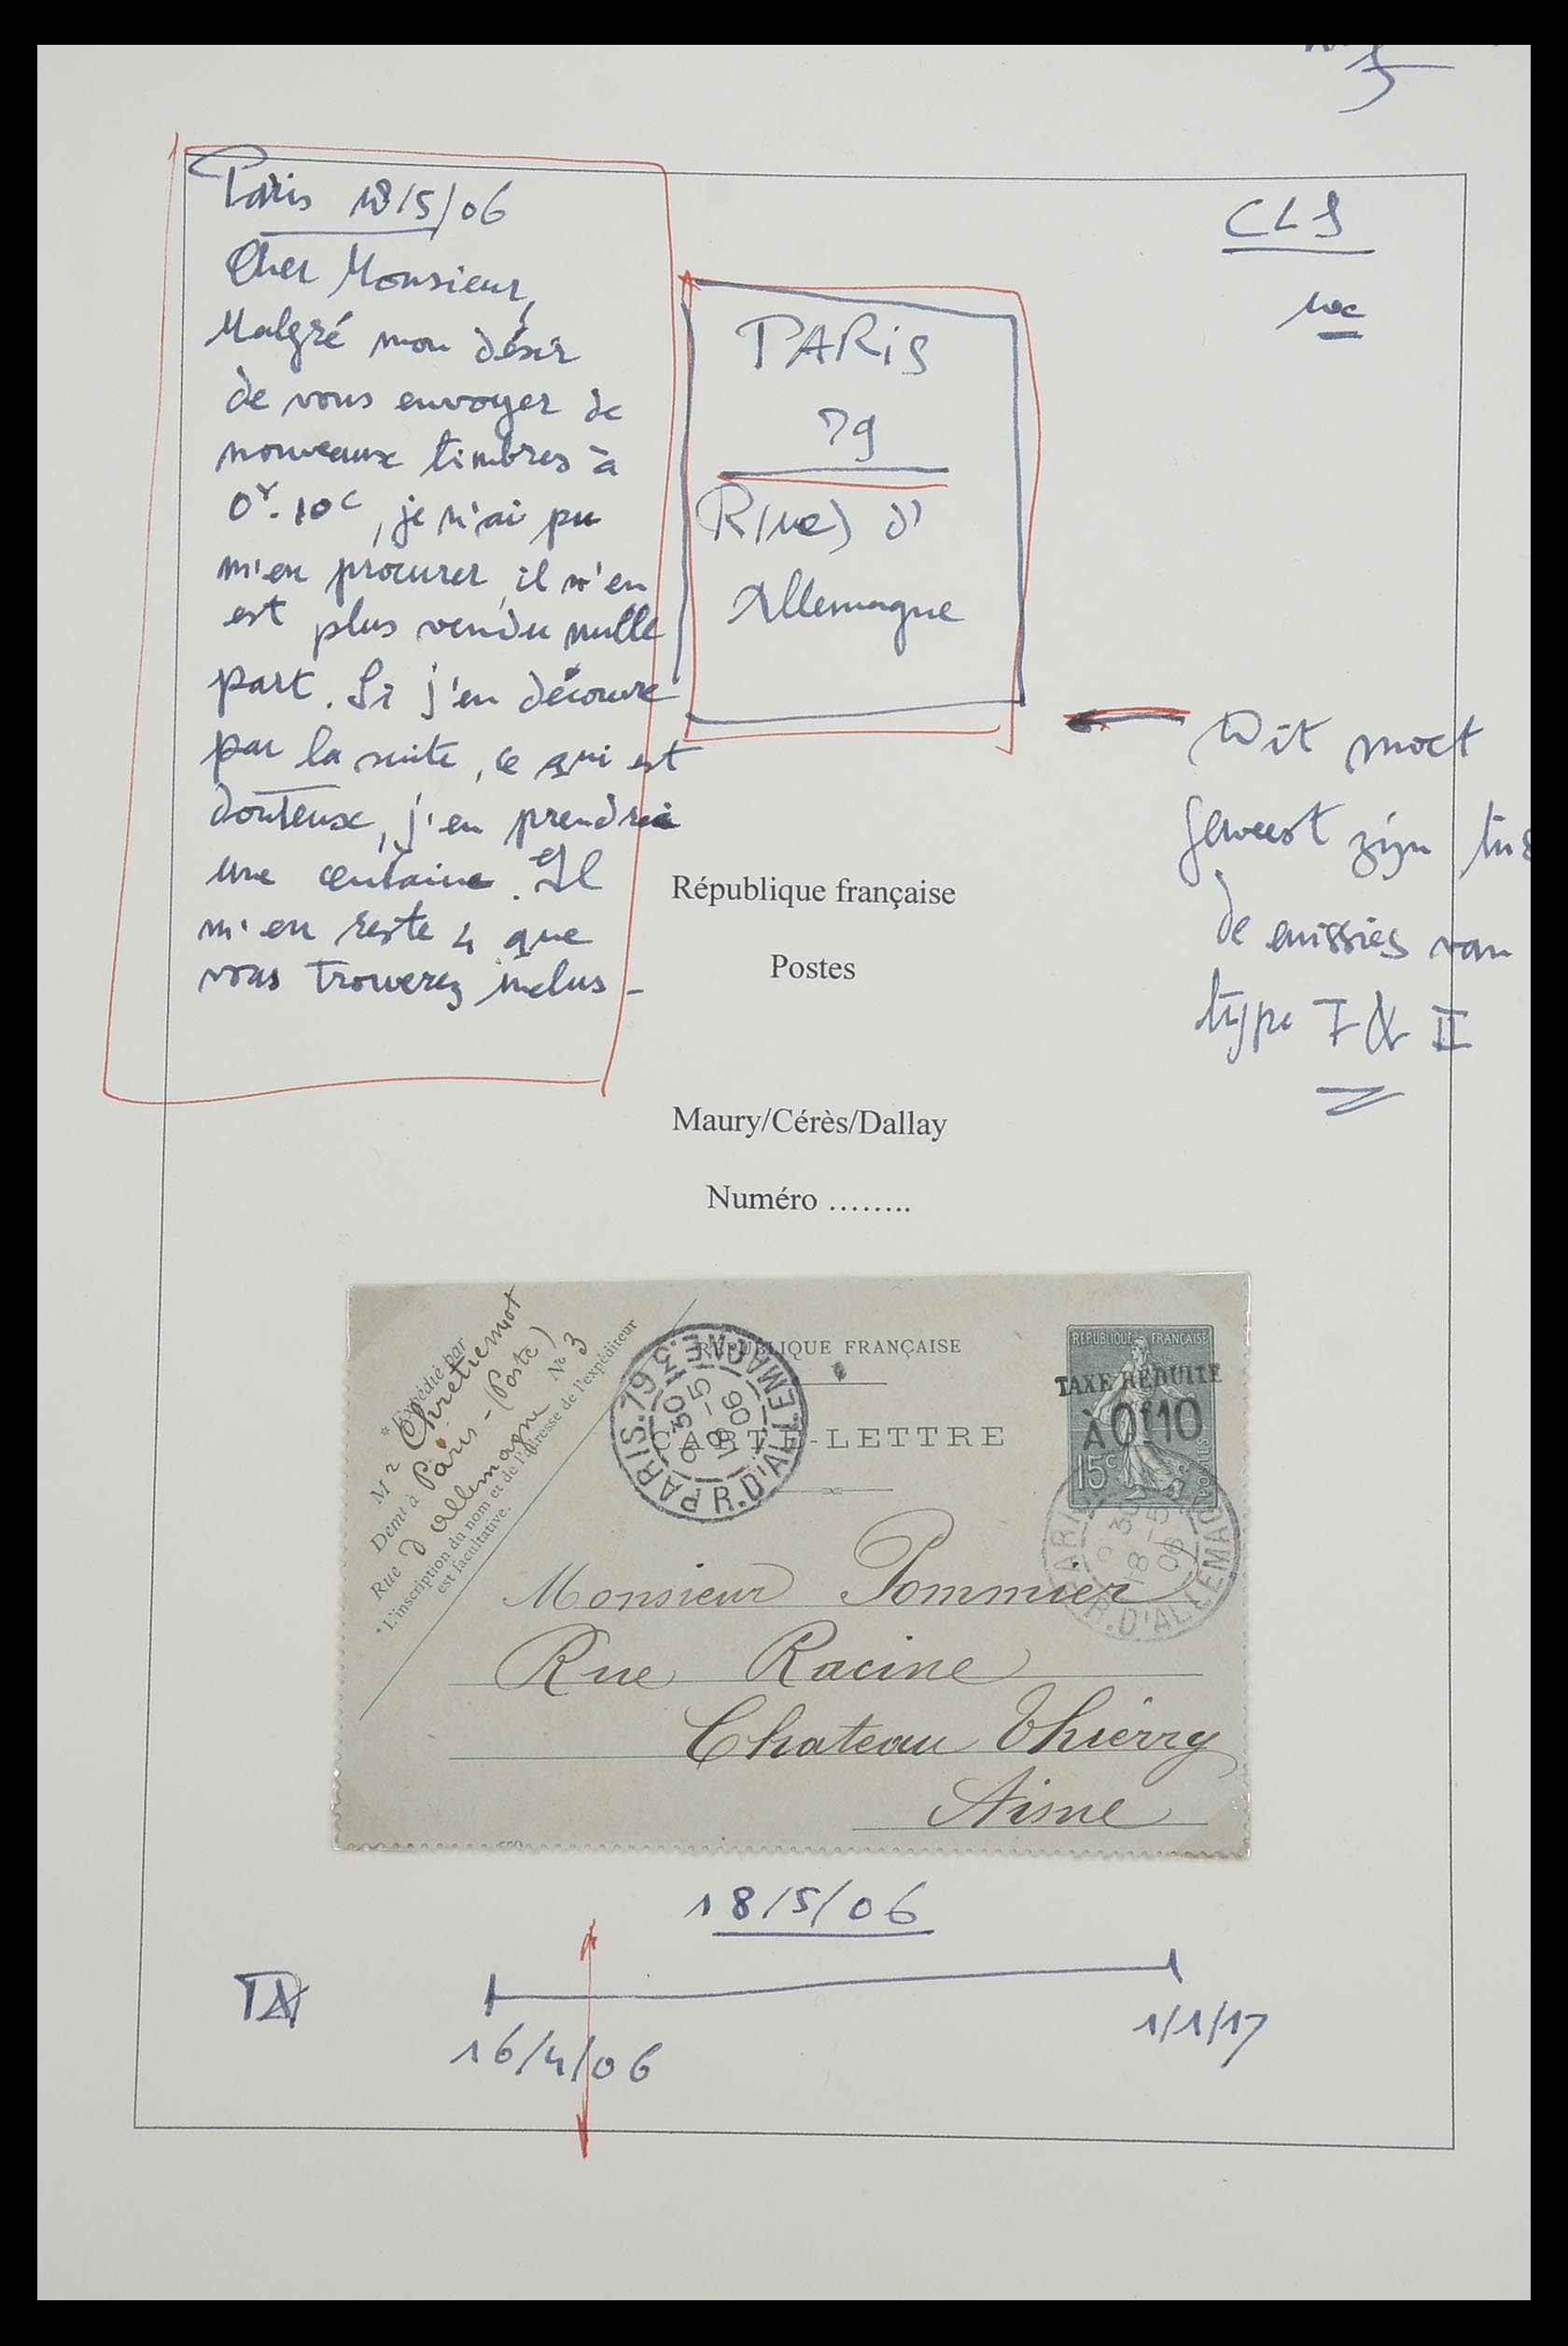 Paris 18/5/06
Cher Monsieur,
Malgré mon désir
de vous envoyer de
nouveaux timbres à
0f.10c, je n'ai pu
m'en procurer, il n'en
est plus vendu nulle
part. Si j'en découvre
par la suite, ce qui est
douteux, j'en prendrai
une centaine. Il
m'en reste 4 que
vous trouverez inclus -
PARiS
79
R(ue) d'
Allemagne
CLS
Dit moet
geweest zijn
de emissies van
type I & II
République française
Postes
Maury/Cérès/Dallay
Numéro ……..
* Expédié par
Mr Chretiennot
Demt à Paris - (Poste)
Rue d'allemagne No 3
*L'inscription du nom et de l'adresse de l'expéditeur
est facultative.
PARIS.19 3
R.D'ALLEMAGNE.
9 30
18 - 5
06
RÉPUBLIQUE FRANÇAISE
CARTE-LETTRE
REPUBLIQUE FRANÇAISE
TAXE RÉDUITE
À 0f10
15c
PARIS
30
18 - 5
06
R.D'ALLEMAG
Monsieur Pommier
Rue Racine
Chateau Thierry
Aisne
18/5/06
16/4/06
1/1/17